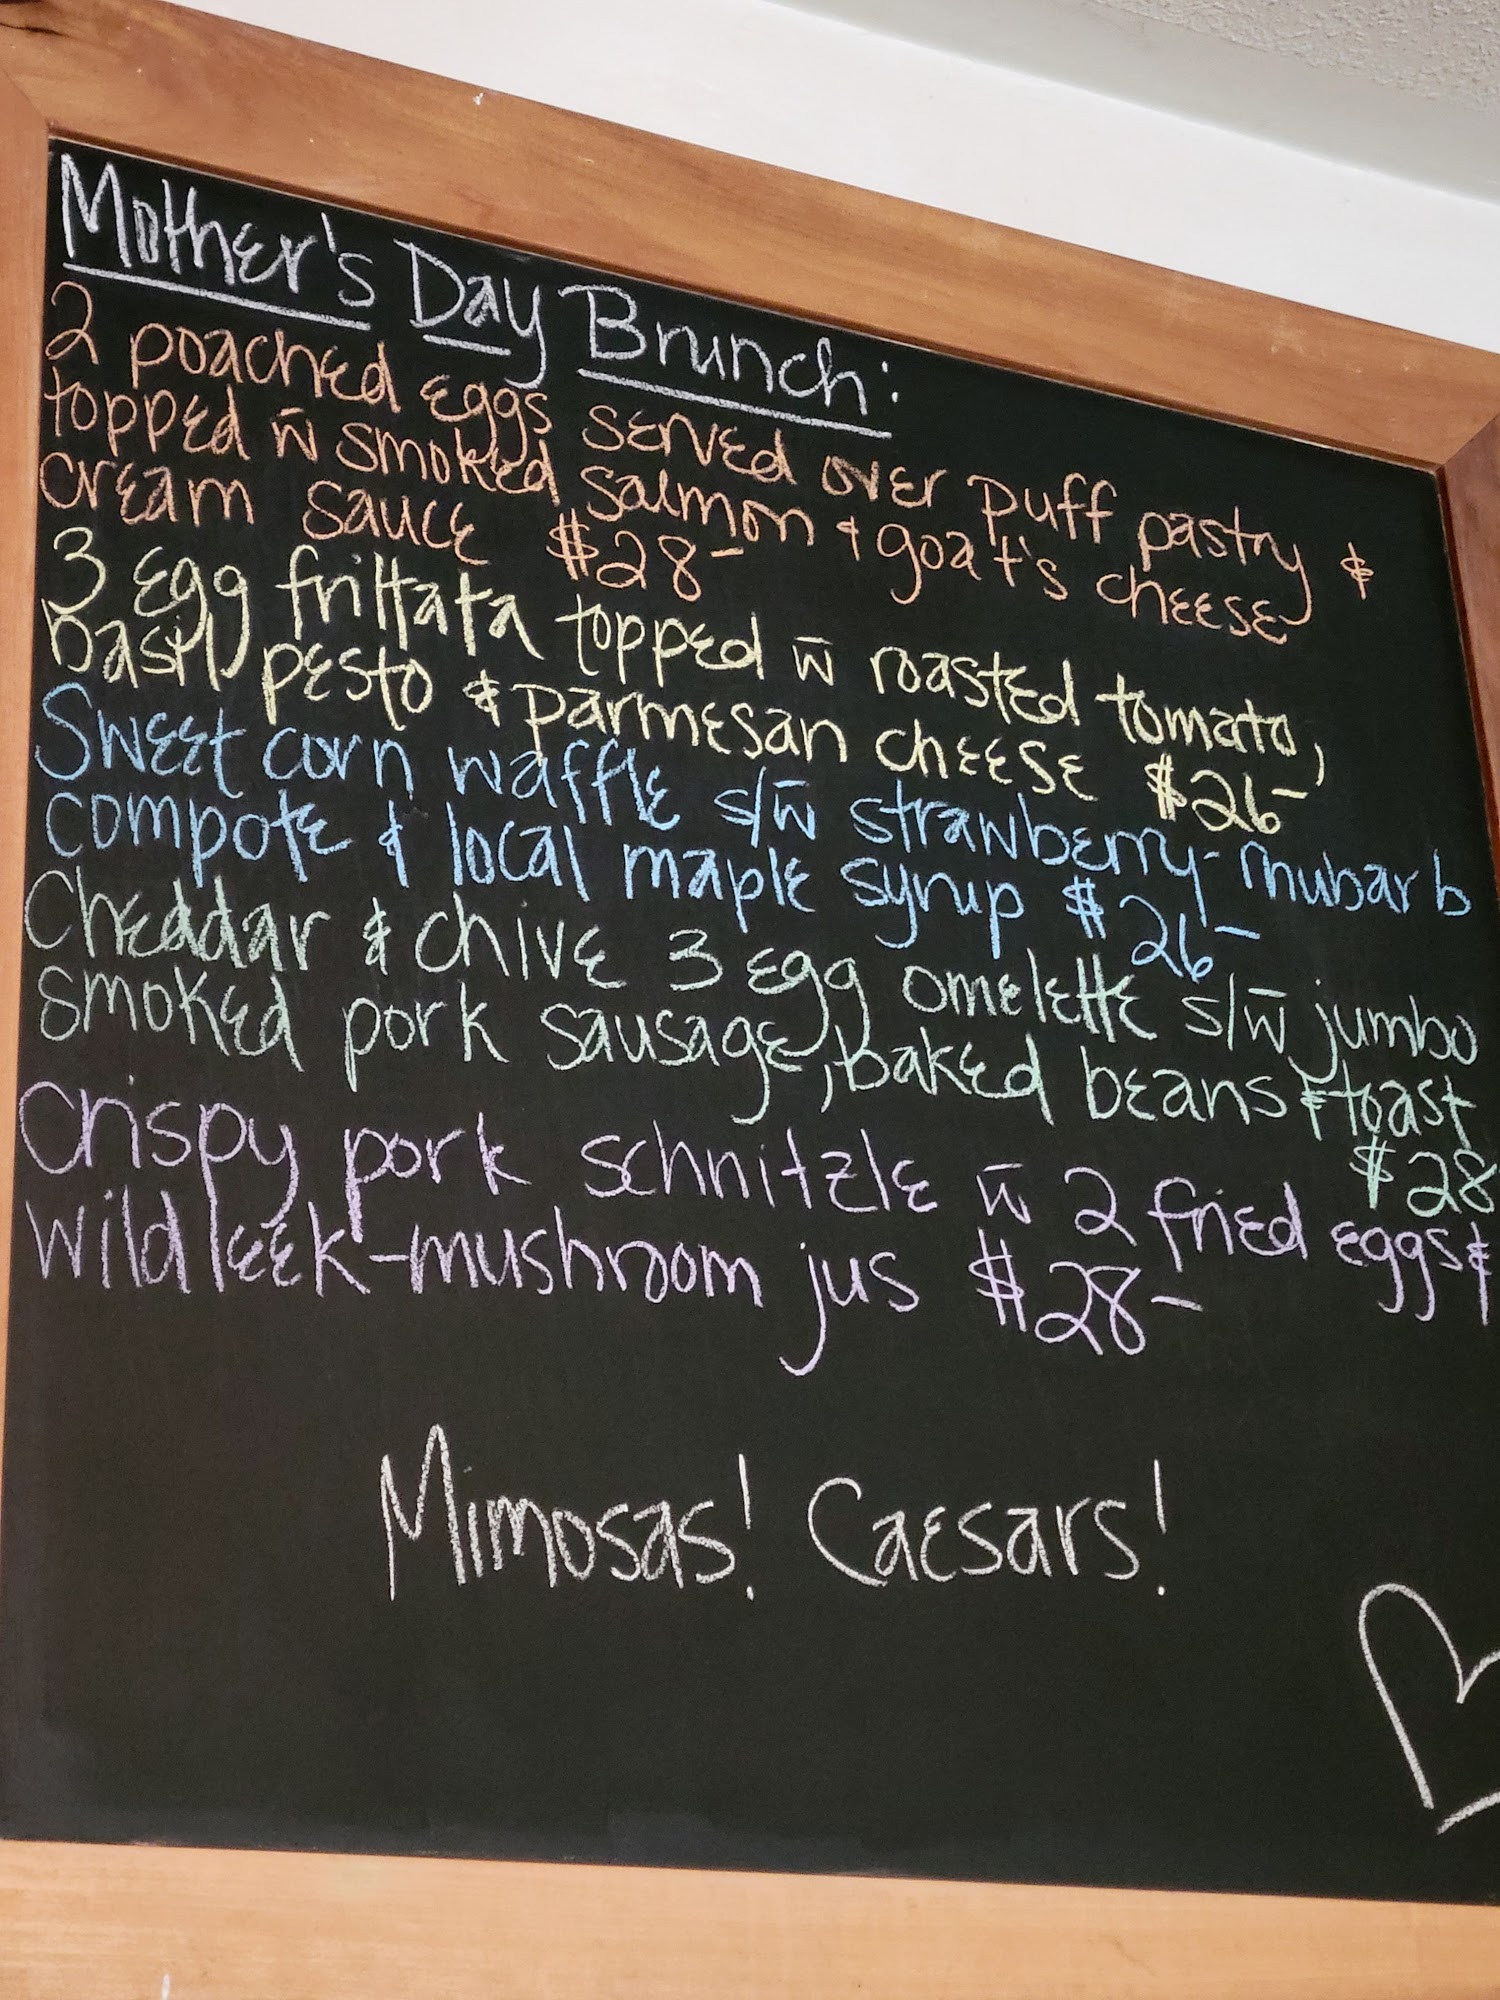 Mother's Day Brunch:
2 poached eggs served over puff pastry &
topped w̄ smoked salmon & goat's cheese
cream sauce $28-
3 egg frittata topped w̄ roasted tomato,
basil pesto & parmesan cheese $26-
Sweet corn waffle s/w̄ strawberry-rhubarb
compote & local maple syrup $26-
Cheddar & chive 3 egg omelette s/w̄ jumbo
smoked pork sausage, baked beans & toast
$28
Crispy pork schnitzle w̄ 2 fried eggs &
wild leek-mushroom jus $28-
Mimosas! Caesars!